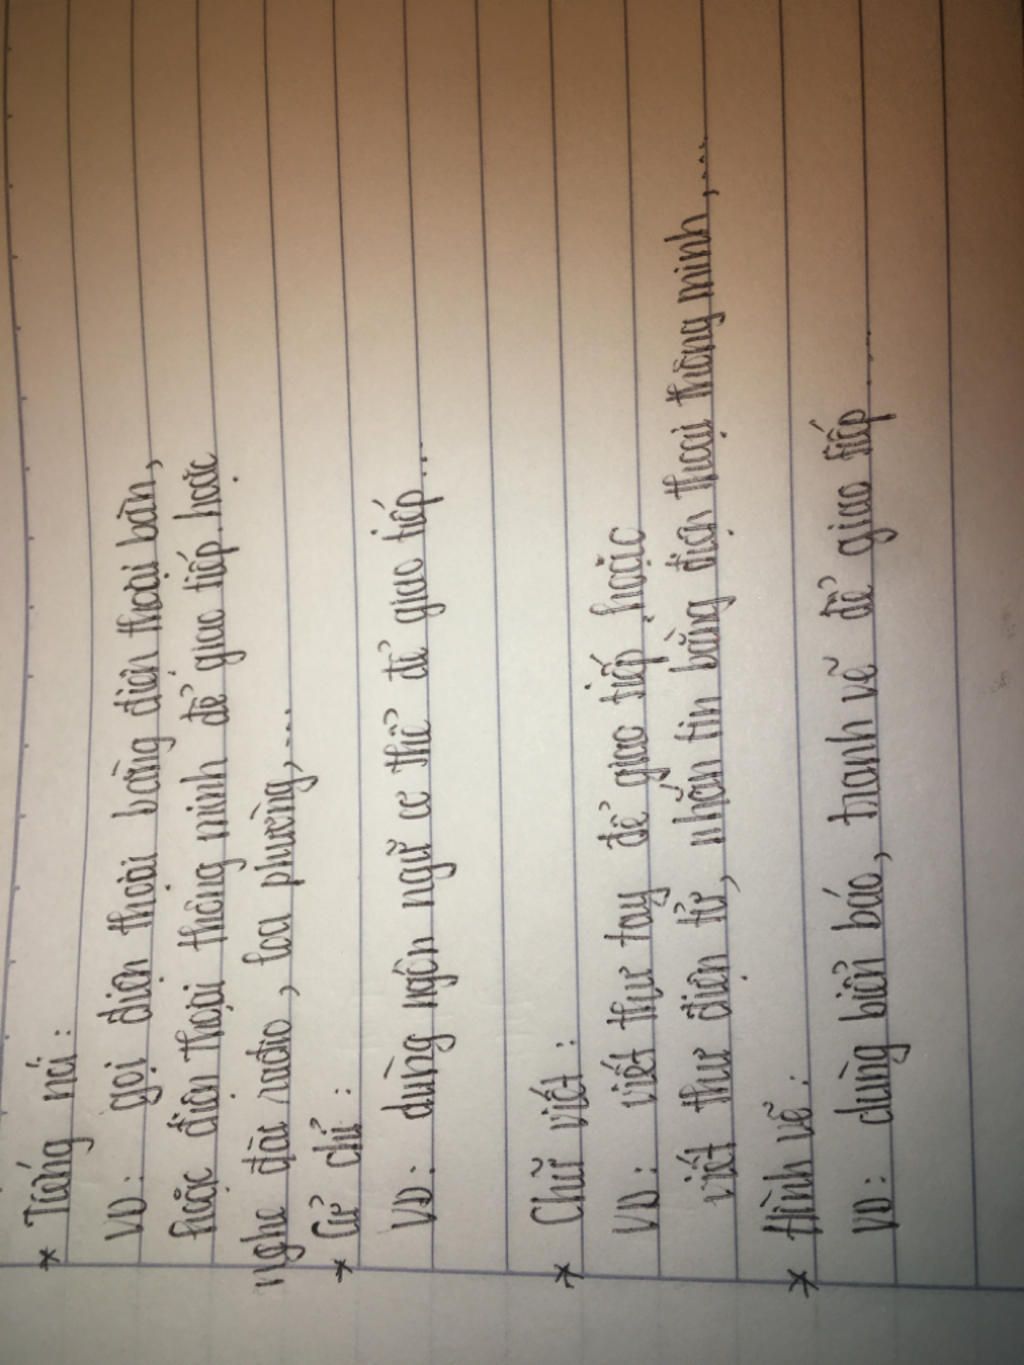 * Tiếng nói:
VD: gọi điện thoại bằng điện thoại bàn,
hoặc điện thoại thông minh để giao tiếp. hoặc
nghe đài radio, loa phường,...
* Cử chỉ:
VD: dùng ngôn ngữ cơ thể để giao tiếp...
* Chữ viết:
VD: viết thư tay để giao tiếp, hoặc
viết thư điện tử, nhắn tin bằng điện thoại thông minh,...
* Hình vẽ:
VD: dùng biển báo, tranh vẽ để giao tiếp....